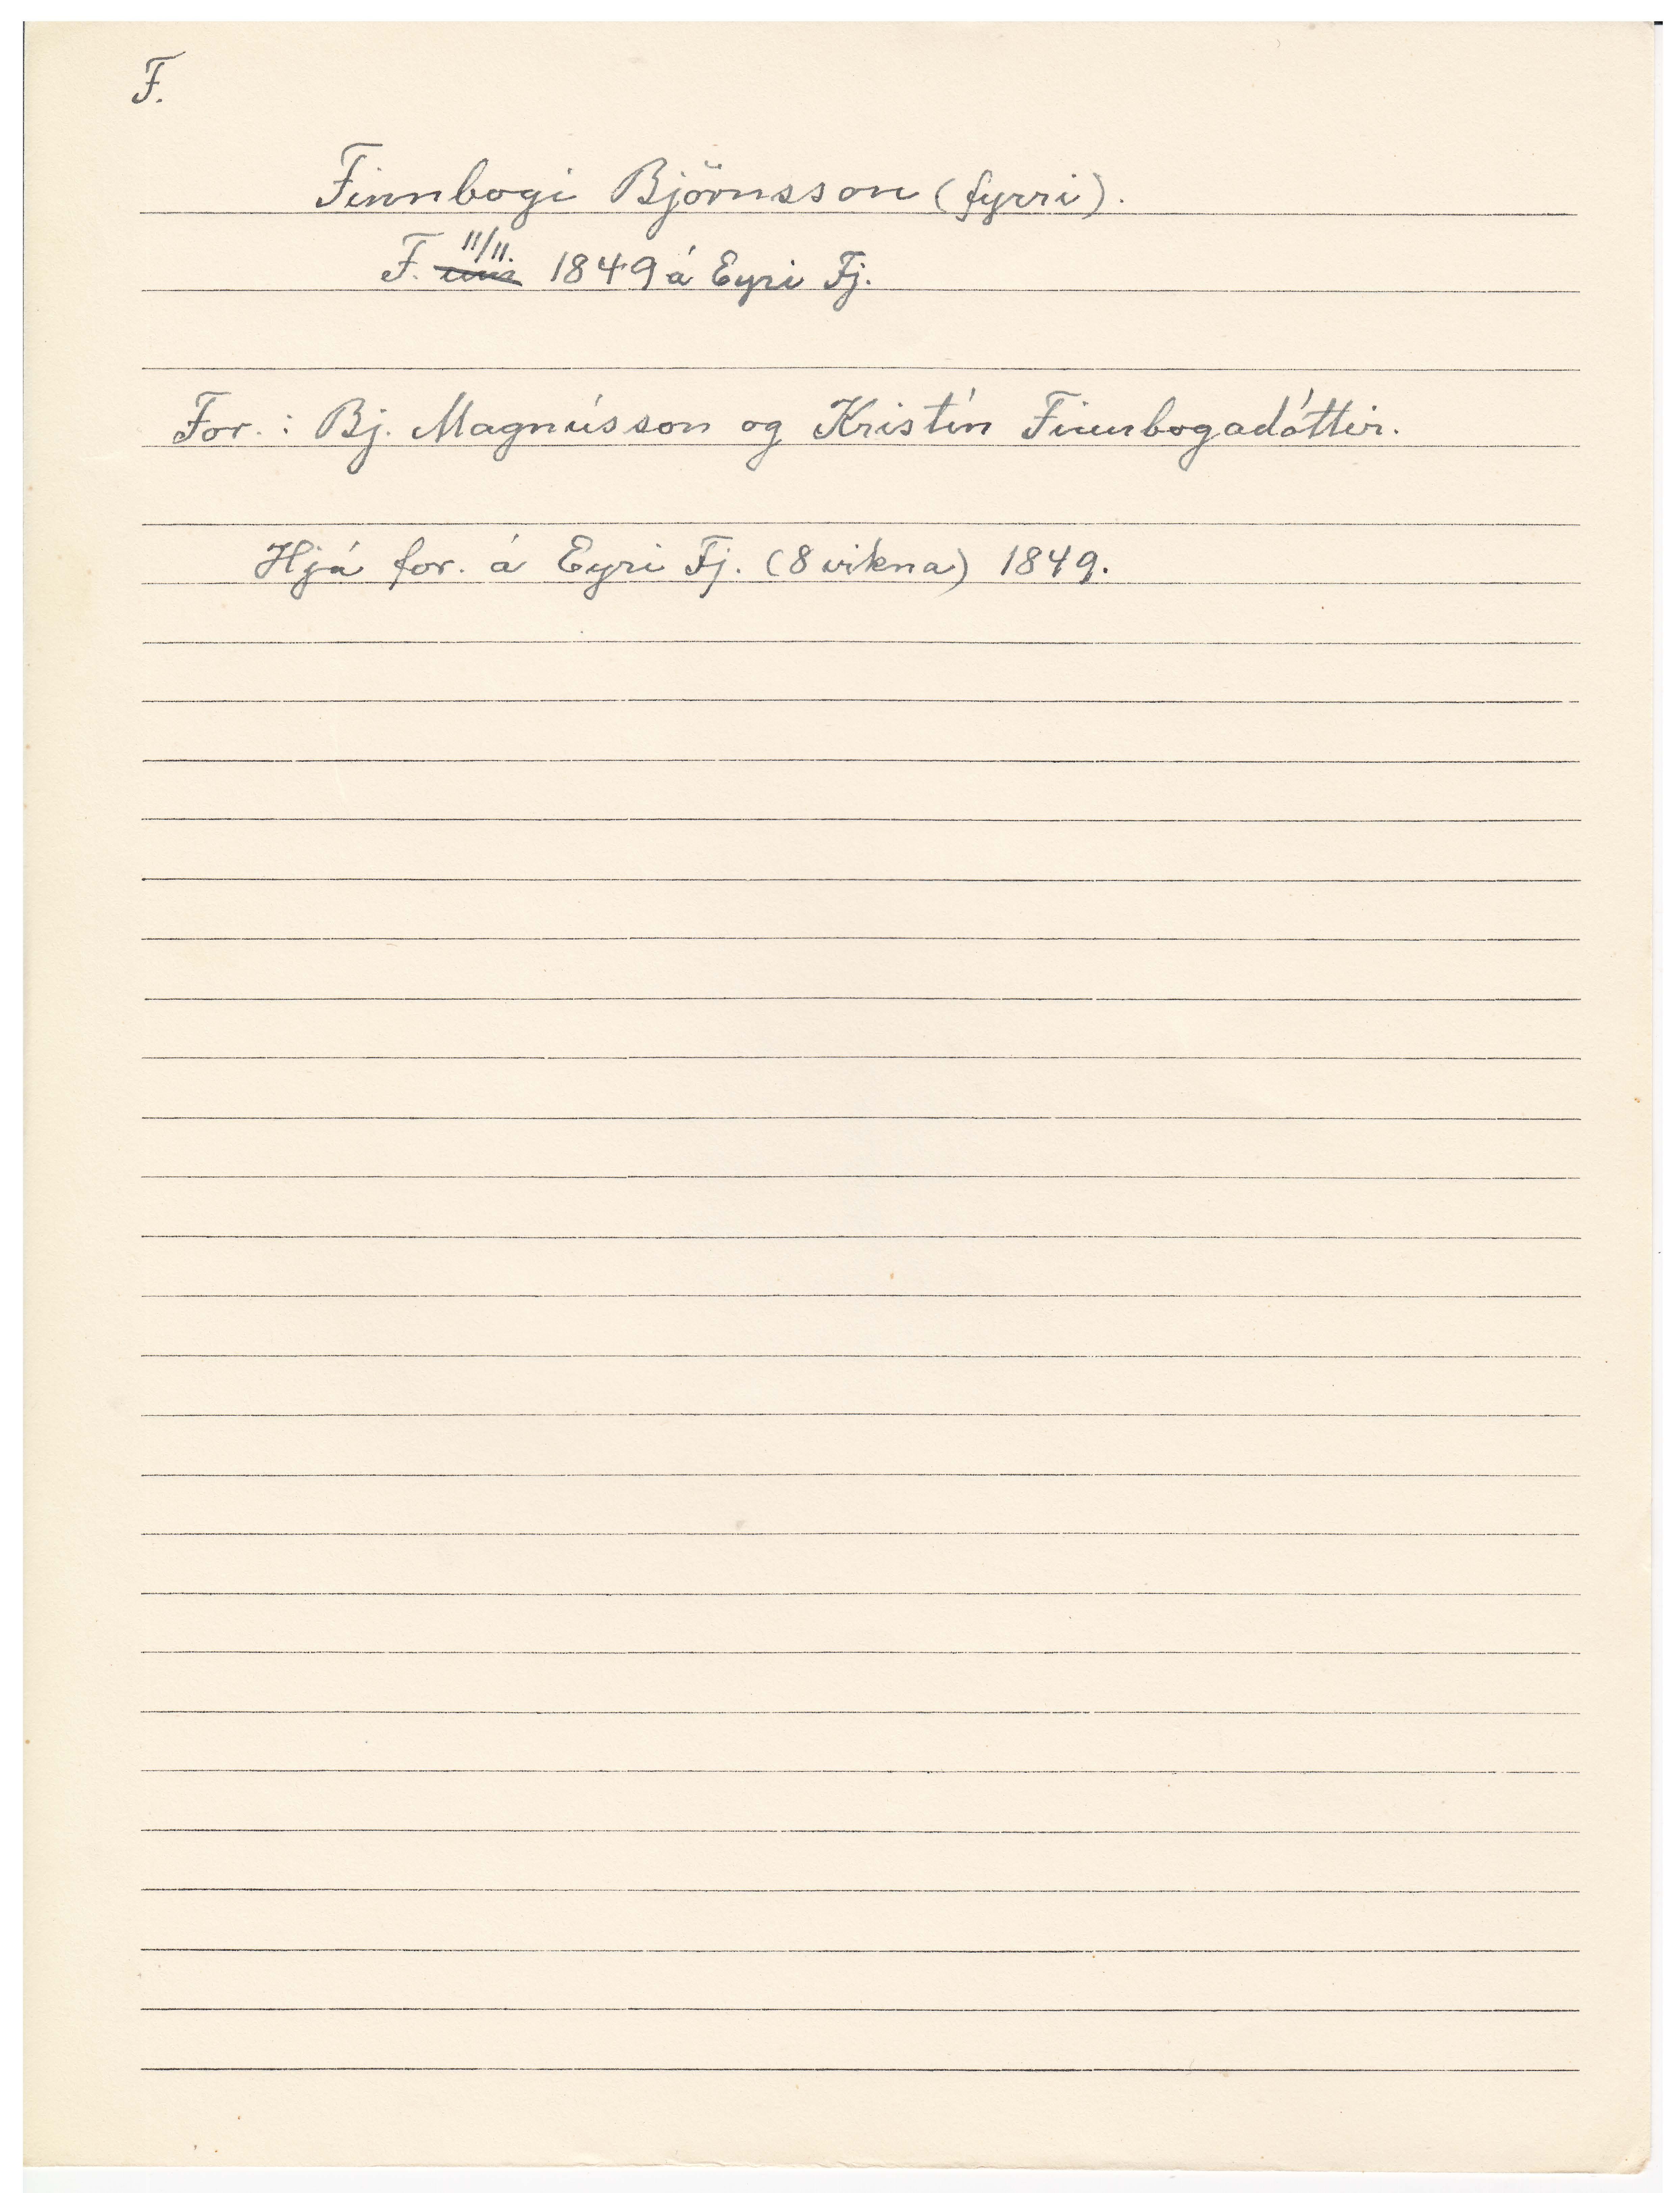 F.
Finnbogi Björnsson (fyrri).
F. 11/11. 1849 á Eyri Fj.
For.: Bj. Magnússon og Kristín Finnbogadóttir.
Hjá for. á Eyri Fj. (8 vikna) 1849.